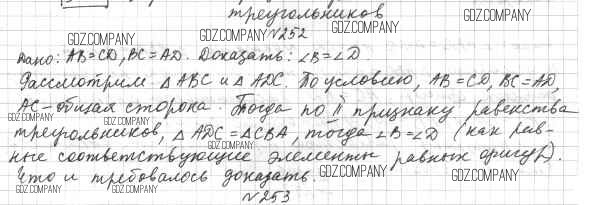 треугольников
GDZ.COMPANY
GDZ.COMPANY №252 GDZ.COMPANY
Дано: AB=CD, BC=AD. Доказать: ∠B=∠D
Рассмотрим △ABC и △ADC. По условию, AB=CD, BC=AD,
AC-общая сторона. Тогда по II признаку равенства
GDZ.COMPANY GDZ.COMPANY GDZ.COMPANY
треугольников, △ADC=△CBA, тогда ∠B=∠D (как рав-
GDZ.COMPANY
ные соответствующие элементы равных фигур).
Что и требовалось доказать.
GDZ.COMPANY GDZ.COMPANY GDZ.COMPANY GDZ.COMPANY
№253